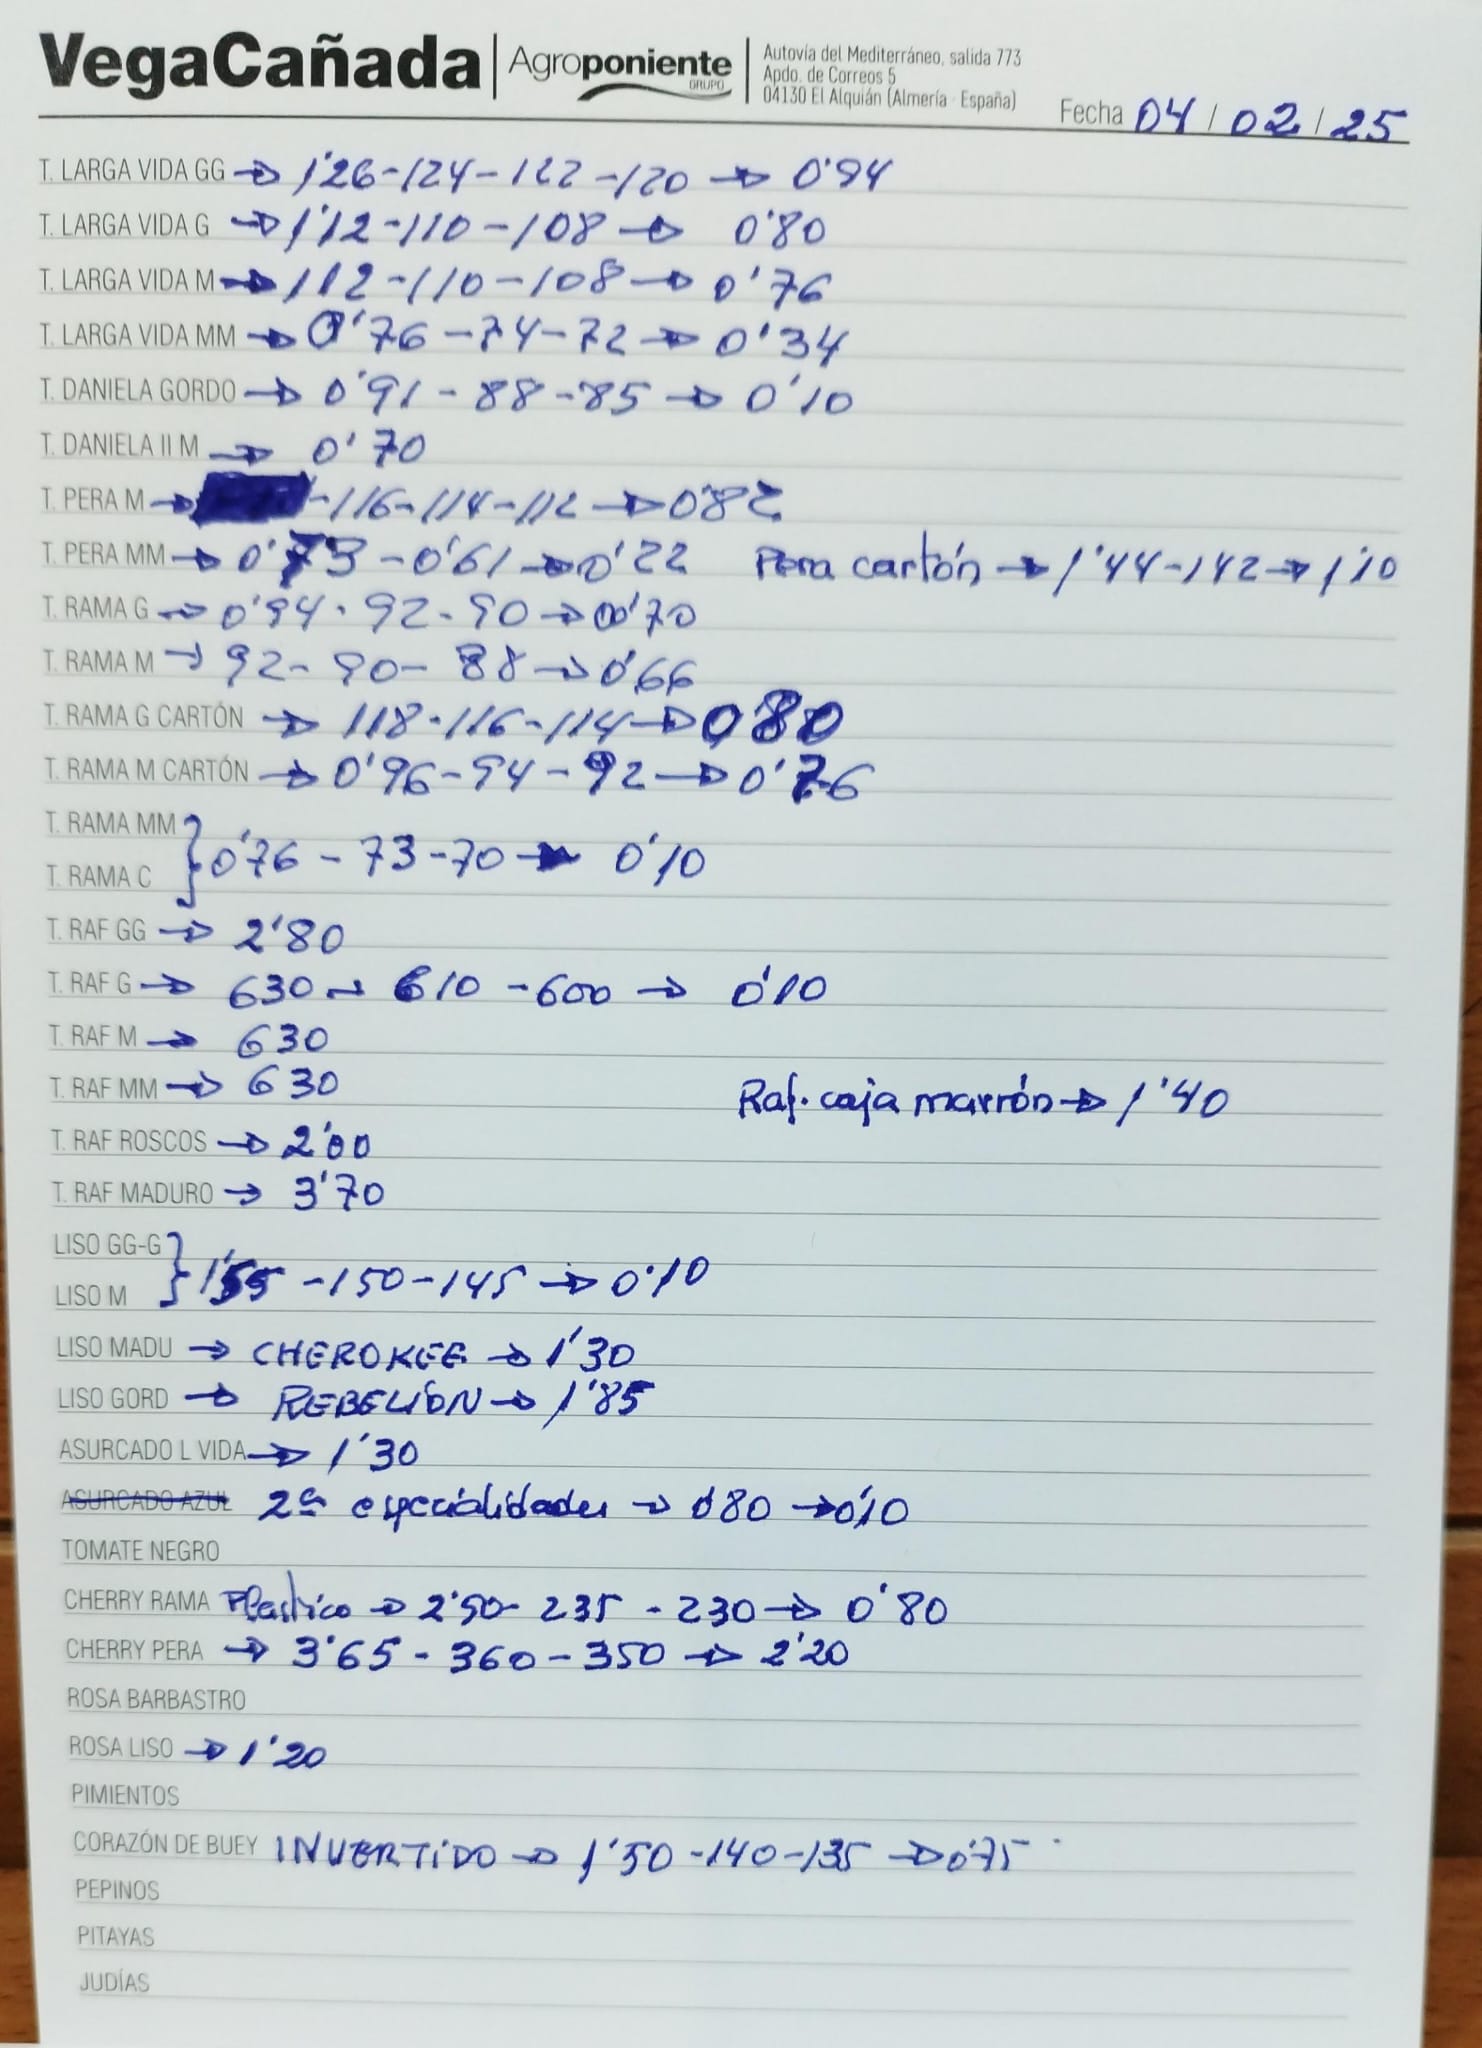 VegaCañada | Agroponiente GRUPO | Autovía del Mediterráneo, salida 773
Apdo. de Correos 5
04130 El Alquián (Almería - España)
Fecha 04/02/25
T. LARGA VIDA GG → 1'26-124-122-120 → 0'94
T. LARGA VIDA G → 1'12-110-108 → 0'80
T. LARGA VIDA M → 112-110-108 → 0'76
T. LARGA VIDA MM → 0'76-74-72 → 0'34
T. DANIELA GORDO → 0'91-88-85 → 0'10
T. DANIELA II M → 0'70
T. PERA M → -116-114-112 → 0'82
T. PERA MM → 0'73-0'61 → 0'22 Pera cartón → 1'44-142 → 1'10
T. RAMA G → 0'94-92-90 → 0'70
T. RAMA M → 92-90-88 → 0'66
T. RAMA G CARTÓN → 118-116-114 → 080
T. RAMA M CARTÓN → 0'96-94-92 → 0'76
T. RAMA MM
T. RAMA C } 0'76-73-70 → 0'10
T. RAF GG → 2'80
T. RAF G → 630-610-600 → 0'10
T. RAF M → 630
T. RAF MM → 630 Raf. caja marrón → 1'40
T. RAF ROSCOS → 2'00
T. RAF MADURO → 3'70
LISO GG-G
LISO M } 1'55-150-145 → 0'10
LISO MADU → CHEROKEE → 1'30
LISO GORD → REBELIÓN → 1'85
ASURCADO L VIDA → 1'30
ASURCADO AZUL 2ª especialidades → 0'80 → 0'10
TOMATE NEGRO
CHERRY RAMA Plastico → 2'50-235-230 → 0'80
CHERRY PERA → 3'65-360-350 → 2'20
ROSA BARBASTRO
ROSA LISO → 1'20
PIMIENTOS
CORAZÓN DE BUEY INVERTIDO → 1'50-140-135 → 0'75
PEPINOS
PITAYAS
JUDÍAS